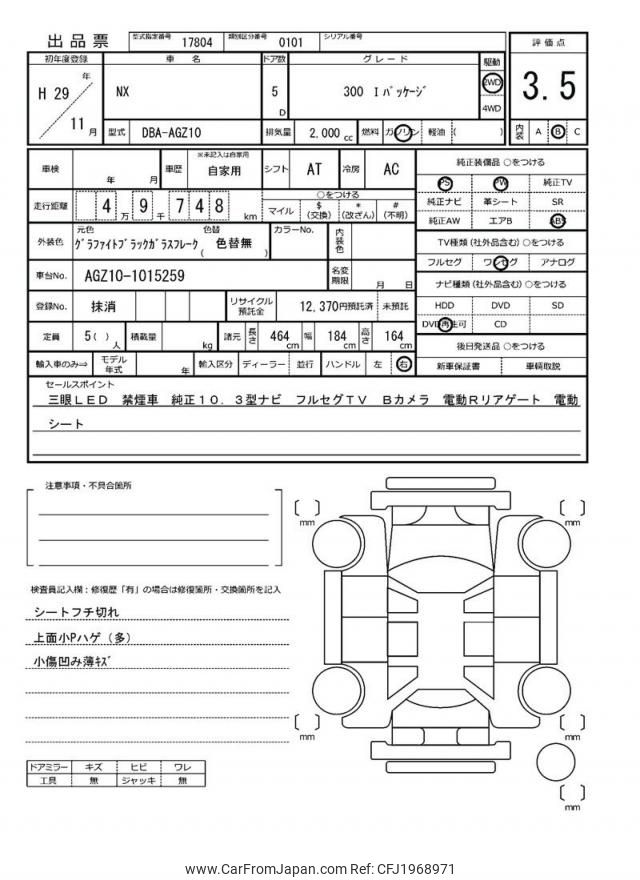 出品票
型式指定番号 17804 類別区分番号 0101 シリアル番号
評価点
3.5
内装 A B C
初年度登録 車名 ドア数 グレード 駆動
H 29 年 11 月
NX
5 D
300 Iパッケージ
2WD
4WD
型式 DBA-AGZ10 排気量 2,000 cc 燃料 ガソリン 軽油 ( )
車検 年 月 車歴 ※未記入は自家用 自家用 シフト AT 冷房 AC
走行距離 4 万 9 千 7 4 8 km
○をつける
マイル $ (交換) * (改ざん) # (不明)
外装色 元色 グラファイトブラックガラスフレーク 色替 ( 色替無 ) カラーNo. 内装色
車台No. AGZ10-1015259 名変期限 月 日
登録No. 抹消 リサイクル預託金 12,370円預託済 未預託
定員 5( ) 人 積載量 kg 諸元 長さ 464 cm 幅 184 cm 高さ 164 cm
輸入車のみ⇒ モデル年式 年 輸入区分 ディーラー 並行 ハンドル 左 右
純正装備品 ○をつける
PS PW 純正TV
純正ナビ 革シート SR
純正AW エアB ABS
TV種類(社外品含む) ○をつける
フルセグ ワンセグ アナログ
ナビ種類(社外品含む) ○をつける
HDD DVD SD
DVD再生可 CD
後日発送品 ○をつける
新車保証書 車輌取説
セールスポイント
三眼LED 禁煙車 純正10.3型ナビ フルセグTV Bカメラ 電動Rリアゲート 電動
シート
注意事項・不具合箇所
検査員記入欄:修復歴「有」の場合は修復箇所・交換箇所を記入
シートフチ切れ
上面小Pハゲ(多)
小傷凹み薄キズ
ドアミラー キズ ヒビ ワレ
工具 無 ジャッキ 無
mm
mm
mm
mm
mm
www.CarFromJapan.com Ref: CFJ1968971